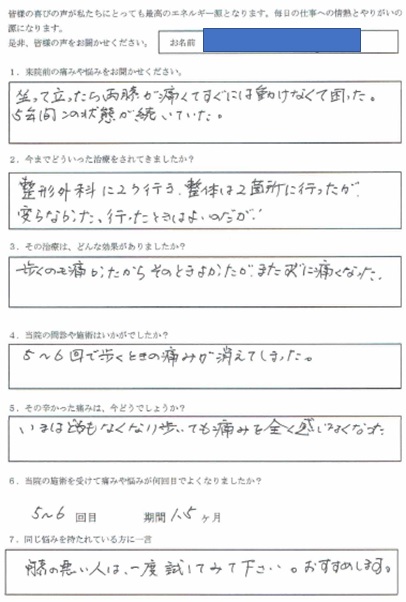 皆様の喜びの声が私たちにとっても最高のエネルギー源となります。毎日の仕事への情熱とやりがいの
源になります。
是非、皆様の声をお聞かせください。 お名前
1．来院前の痛みや悩みをお聞かせください。
坐って立ったら両膝が痛くてすぐには動けなくて困った。
5年間この状態が続いていた。
2．今までどういった治療をされてきましたか？
整形外科に2ヶ行き、整体は2箇所に行ったが、
変らなかった、行ったときはよいのだが、
3．その治療は、どんな効果がありましたか？
歩くのも痛かったからそのときよかったが、またすぐに痛くなった。
4．当院の問診や施術はいかがでしたか？
5～6回で歩くときの痛みが消えてしまった。
5．その辛かった痛みは、今どうでしょうか？
いまはどうもなくなり歩いても痛みを全く感じなくなった
6．当院の施術を受けて痛みや悩みが何回目でよくなりましたか？
5～6 回目 期間 1.5 ヶ月
7．同じ悩みを持たれている方に一言
膝の悪い人は、一度試してみて下さい。おすすめします。